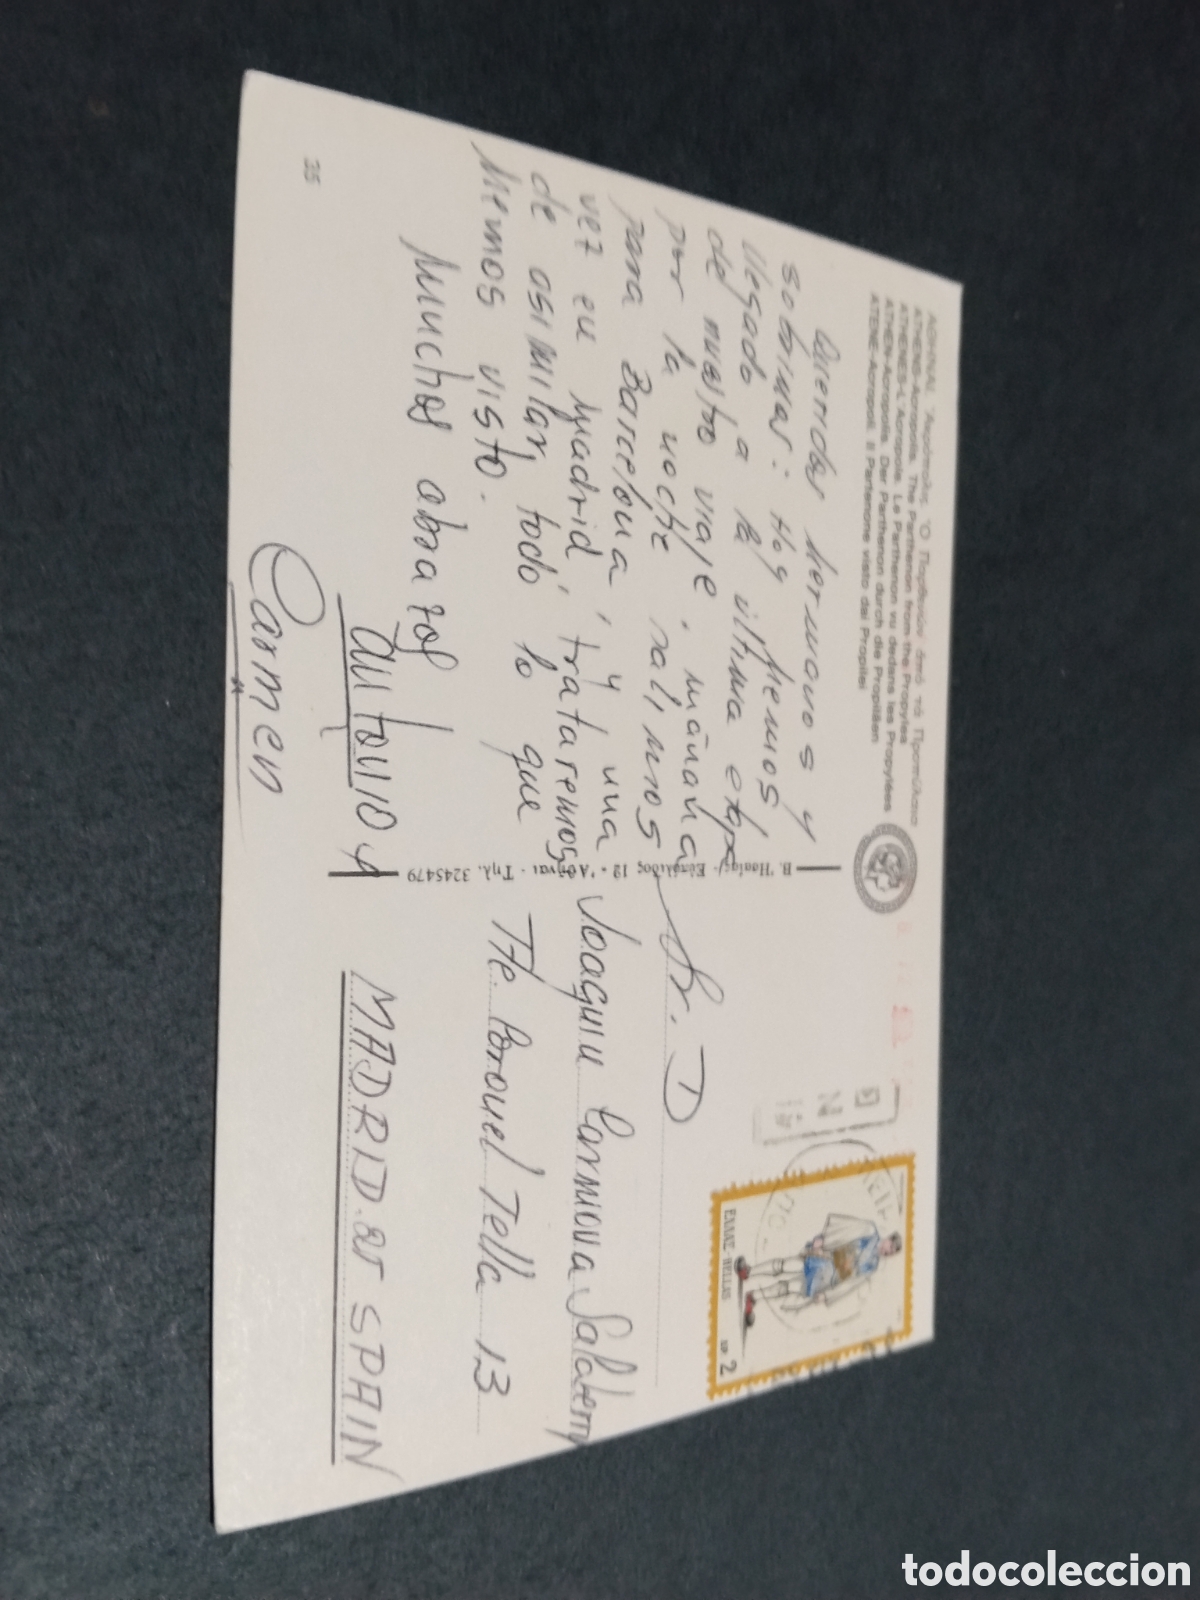 ΑΘΗΝΑΙ. Ἀκρόπολις. Ὁ Παρθενών ἀπό τά Προπύλαια
ATHENS-Acropolis. The Parthenon from the Propylea
ATHENES-L'Acropole. Le Parthenon vu dedans les Propylées
ATHEN-Acropolis. Der Parthenon durch die Propiläen
ATENE-Acropoli. Il Partenone visto dai Propilei
Queridos hermanos y
sobrinas: Hoy hemos
llegado a la última etapa
de nuestro viaje. mañana
por la noche salimos
para Barcelona, y una
vez en Madrid, trataremos
de asimilar todo lo que
hemos visto.
Muchos abrazos
Antonio y
Carmen
35
Ἀθῆναι - Τηλ. 3245479
Sr. D
Joaquin Carmona Salaterry
Tte. Coronel Tella 13
MADRID. SPAIN
ΕΛΛΑΣ-HELLAS
ΔΡ 2
todocoleccion